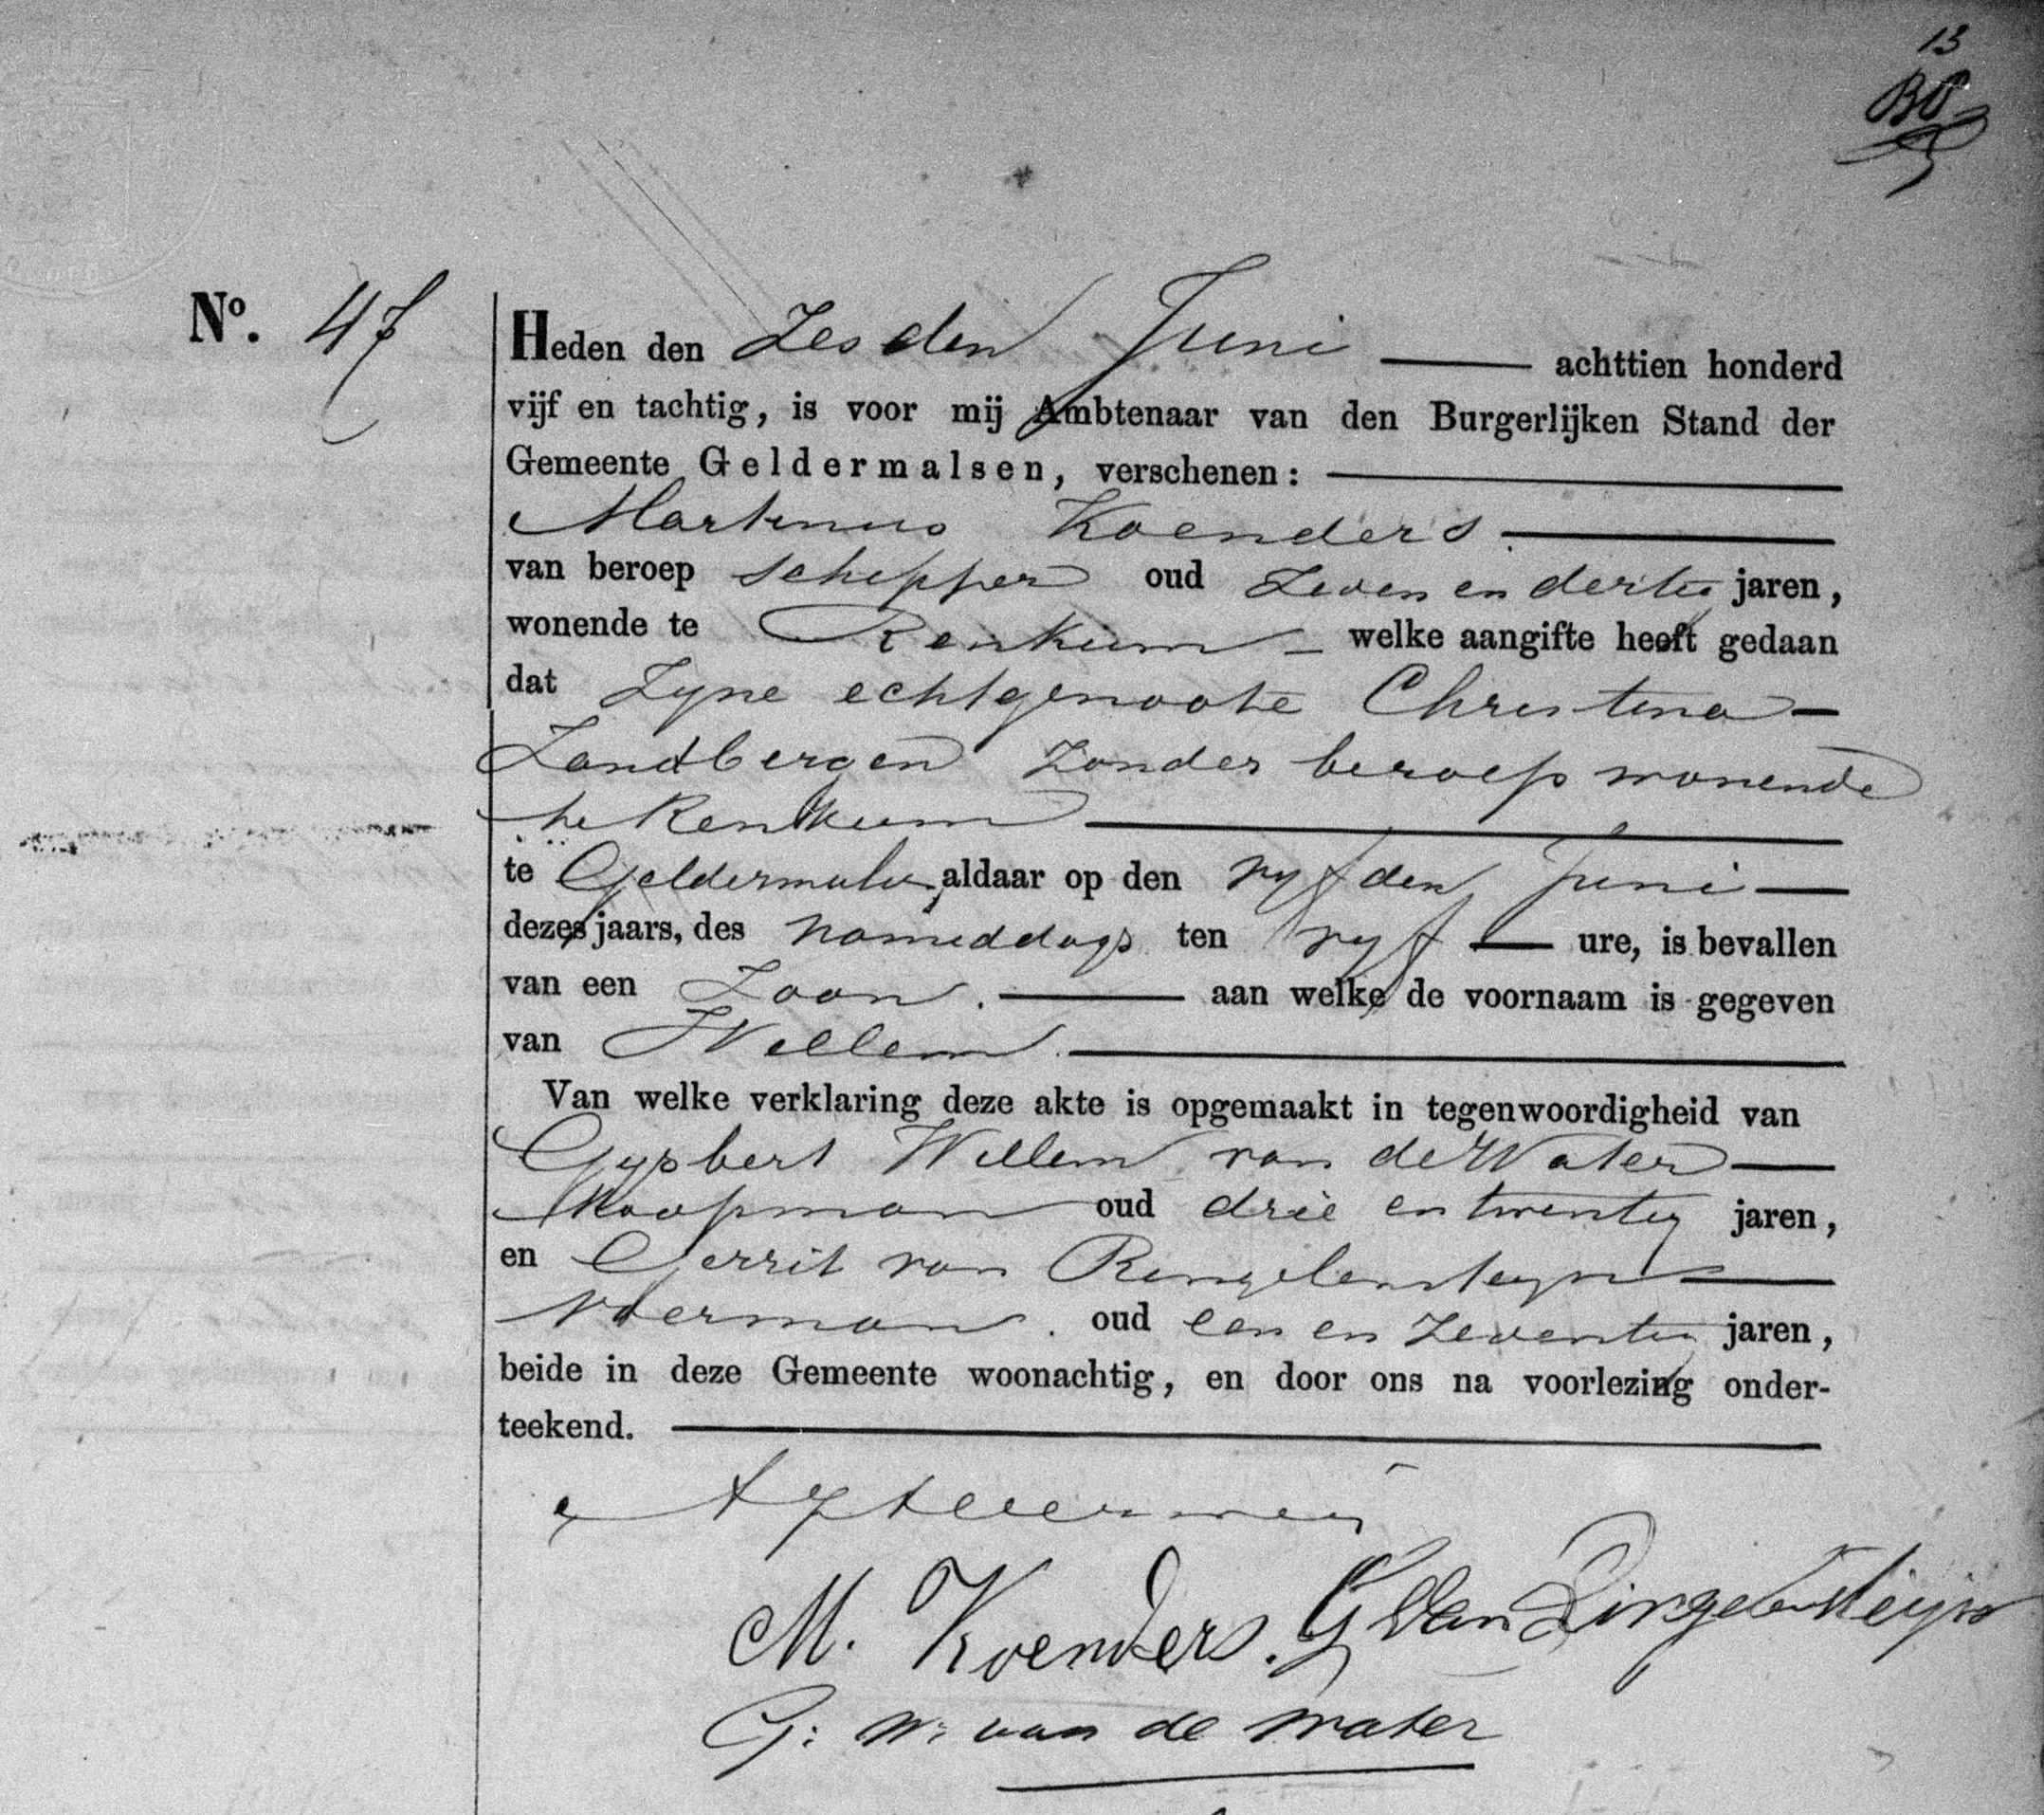 13
No. 47
Heden den Zesden Juni achttien honderd
vijf en tachtig, is voor mij Ambtenaar van den Burgerlijken Stand der
Gemeente Geldermalsen, verschenen:
Martinus Koenders
van beroep schipper oud Zeven en dertig jaren,
wonende te Renkum welke aangifte heeft gedaan
dat Zyne echtgenoote Christina
Zandbergen Zonder beroep wonende
te Renkum
te Geldermalsen, aldaar op den vyfden Juni
dezes jaars, des namiddags ten vyf ure, is bevallen
van een Zoon. aan welke de voornaam is gegeven
van Willem.
Van welke verklaring deze akte is opgemaakt in tegenwoordigheid van
Gysbert Willem van de Water
Koopman oud drie en twintig jaren,
en Gerrit van Ringelensteyn
Voerman. oud een en Zeventig jaren,
beide in deze Gemeente woonachtig, en door ons na voorlezing onder-
teekend.
M. Koenders. G Van Ringelensteijn
G: W: van de Water